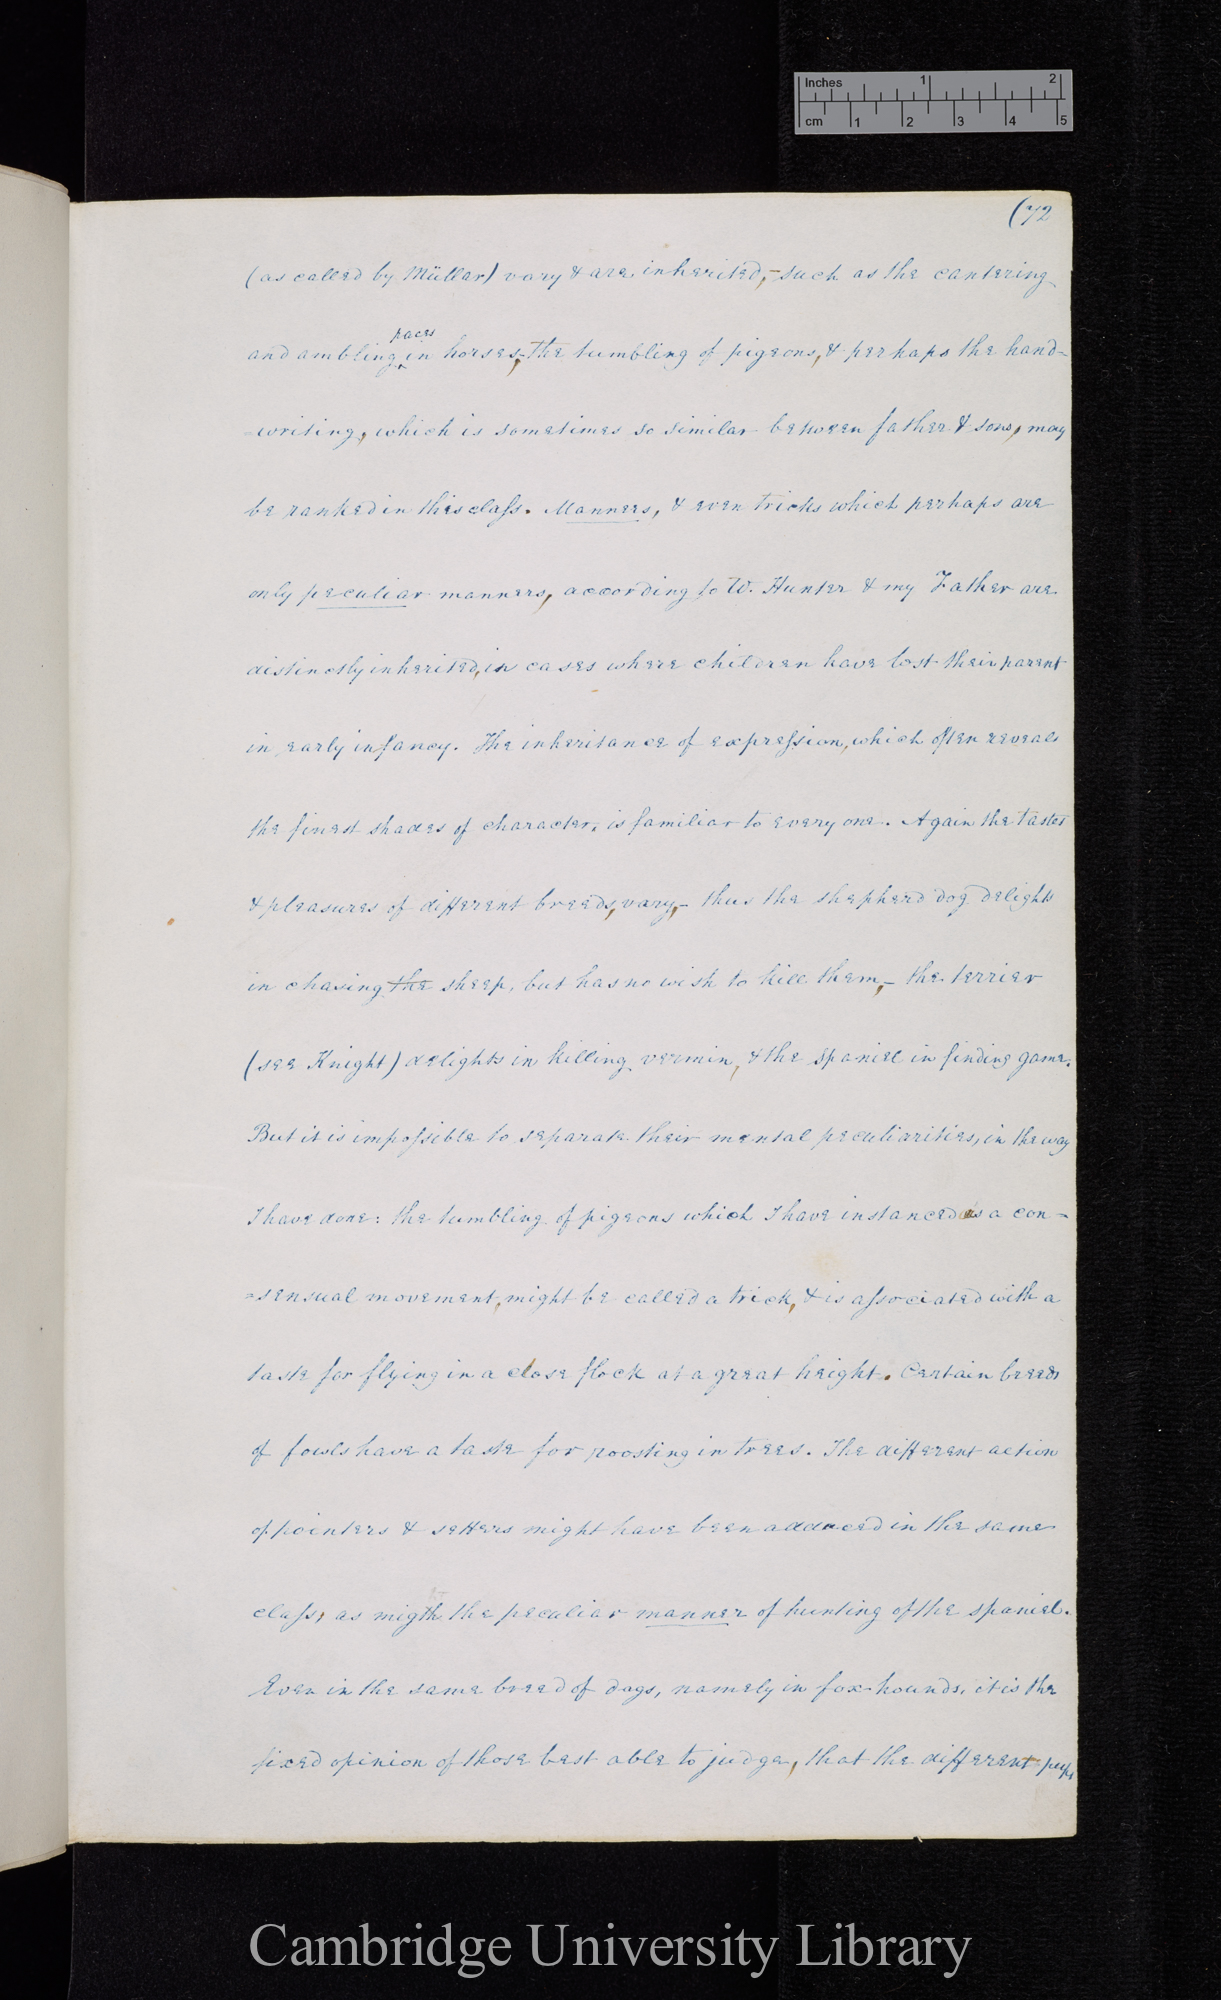 Inches 1 2
cm 1 2 3 4 5
(72
(as called by Müller) vary & are inherited,—such as the cantering
paces
and ambling in horses, the tumbling of pigeons, & perhaps the hand=
=writing, which is sometimes so similar between father & sons, may
be ranked in this class. Manners, & even tricks which perhaps are
only peculiar manners, according to W. Hunter & my Father are
distinctly inherited, in cases where children have lost their parent
in early infancy. The inheritance of expression, which often reveals
the finest shades of character, is familiar to every one. Again the tastes
& pleasures of different breeds, vary,— thus the shepherd dog delights
in chasing the sheep, but has no wish to kill them,— the terrier
(see Knight) delights in killing vermin, & the spaniel in finding game.
But it is impossible to separate their mental peculiarities, in the way
I have done: the tumbling of pigeons which I have instanced as a con=
=sensual movement, might be called a trick, & is associated with a
taste for flying in a close flock at a great height. Certain breeds
of fowls have a taste for roosting in trees. The different action
of pointers & setters might have been adduced in the same
class, as migth the peculiar manner of hunting of the spaniel.
Even in the same breed of dogs, namely in fox-hounds, it is the
fixed opinion of those best able to judge, that the different pups
Cambridge University Library